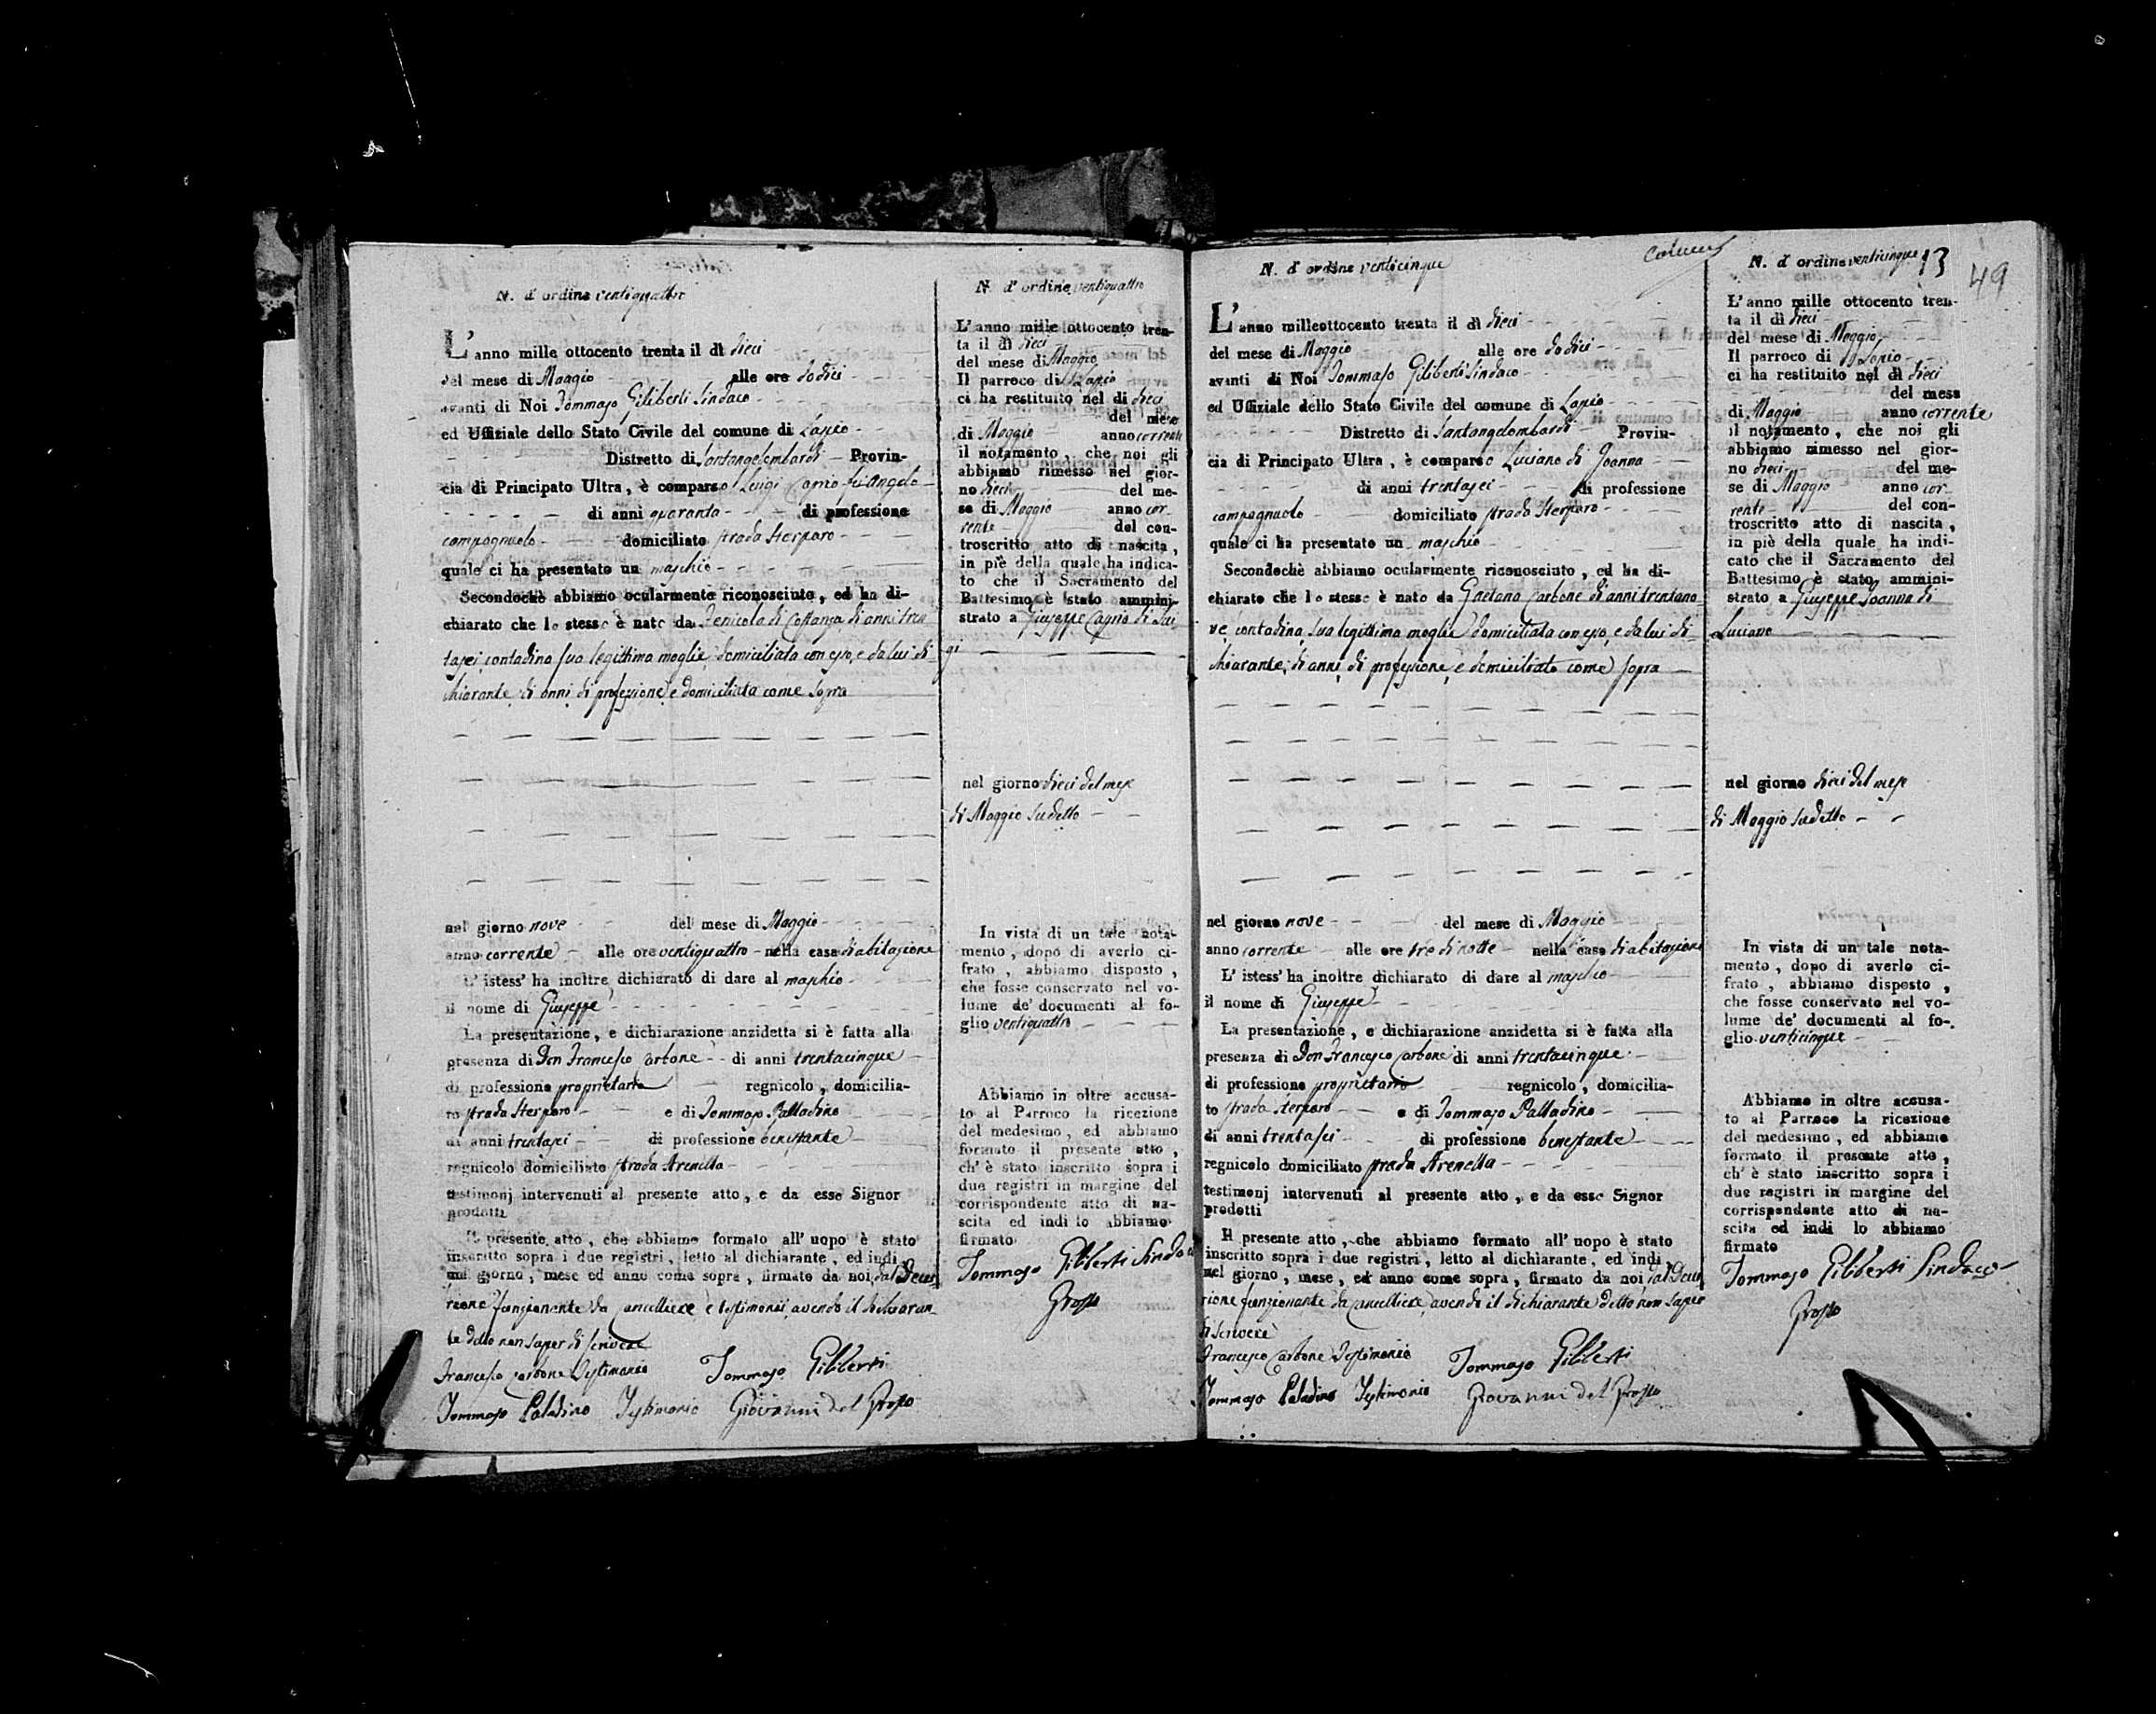 N. d'ordine ventiquattro
L'anno mille ottocento trenta il dì dieci
del mese di Maggio alle ore dodici
avanti di Noi Tommaso Giliberti Sindaco
ed Uffiziale dello Stato Civile del comune di Lapio
Distretto di Santangelombardi Provin-
cia di Principato Ultra, è comparso Luigi Cagno fu Angelo
di anni quaranta di professione
campagnuolo domiciliato strada Sterparo
quale ci ha presentato un maschio
Secondochè abbiamo ocularmente riconosciuto, ed ha di-
chiarato che lo stesso è nato da Zenicola di Costanza di anni tren
tasei contadina sua legittima moglie domiciliata con esso, e da lui di-
chiarante di anni di professione e domiciliata come sopra
nel giorno nove del mese di Maggio
anno corrente alle ore ventiquattro nella casa di abitazione
L'istess' ha inoltre dichiarato di dare al maschio
il nome di Giuseppe
La presentazione, e dichiarazione anzidetta si è fatta alla
presenza di Don Francesco Carbone di anni trentacinque
di professione proprietario regnicolo, domicilia-
to strada Sterparo e di Tommaso Palladino
di anni trentasei di professione benestante
regnicolo domiciliato strada Arenella
testimonj intervenuti al presente atto, e da esso Signor
prodotti
Il presente atto, che abbiamo formato all'uopo è stato
inscritto sopra i due registri, letto al dichiarante, ed indi
nel giorno, mese ed anno come sopra, firmato da noi, dal Decu
rione funzionante da Cancelliere e testimonii, avendo il dichiaran
te detto non saper di scrivere
Francesco Carbone Testimonio Tommaso Giliberti
Tommaso Paladino Testimonio Giovanni del Grosso
N. d'ordine ventiquattro
L'anno mille ottocento tren-
ta il dì dieci
del mese di Maggio
Il parroco di Lapio
ci ha restituito nel dì dieci
del mese
di Maggio anno corrente
il notamento, che noi gli
abbiamo rimesso nel gior-
no dieci del me-
se di Maggio anno cor
rente del con-
troscritto atto di nascita,
in piè della quale ha indica-
to che il Sacramento del
Battesimo è stato ammini-
strato a Giuseppe Cagno di Lui
gi
nel giorno dieci del mese
di Maggio sudetto
In vista di un tale nota-
mento, dopo di averlo ci-
frato, abbiamo disposto,
che fosse conservato nel vo-
lume de' documenti al fo-
glio ventiquattro
Abbiamo in oltre accusa-
to al Parroco la ricezione
del medesimo, ed abbiamo
formato il presente atto,
ch'è stato inscritto sopra i
due registri in margine del
corrispondente atto di na-
scita ed indi lo abbiamo
firmato
Tommaso Giliberti Sindaco
Grosso
N. d'ordine venticinque
L'anno milleottocento trenta il dì dieci
del mese di Maggio alle ore dodici
avanti di Noi Tommaso Giliberti Sindaco
ed Uffiziale dello Stato Civile del comune di Lapio
Distretto di Santangelombardi Provin-
cia di Principato Ultra, è comparso Luciano di Joanna
di anni trentasei di professione
campagnuolo domiciliato strada Sterparo
quale ci ha presentato un maschio
Secondochè abbiamo ocularmente riconosciuto, ed ha di-
chiarato che lo stesso è nato da Gaetana Carbone di anni trentano
ve, contadina, sua legittima moglie domiciliata con esso, e da lui di-
chiarante, di anni, di professione, e domiciliato come sopra
nel giorno nove del mese di Maggio
anno corrente alle ore tre di notte nella casa di abitazione
L'istess' ha inoltre dichiarato di dare al maschio
il nome di Giuseppe
La presentazione, e dichiarazione anzidetta si è fatta alla
presenza di Don Francesco Carbone di anni trentacinque
di professione proprietario regnicolo, domicilia-
to strada Sterparo e di Tommaso Palladino
di anni trentasei di professione benestante
regnicolo domiciliato strada Arenella
testimonj intervenuti al presente atto, e da esso Signor
prodotti
Il presente atto, che abbiamo formato all'uopo è stato
inscritto sopra i due registri, letto al dichiarante, ed indi
nel giorno, mese, ed anno come sopra, firmato da noi dal Decu
rione funzionante da Cancelliere, avendo il dichiarante detto non saper
di scrivere
Francesco Carbone Testimonio Tommaso Giliberti
Tommaso Paladino Testimonio Giovanni del Grosso
N. d'ordine venticinque 13
49
L'anno mille ottocento tren-
ta il dì dieci
del mese di Maggio
Il parroco di Lapio
ci ha restituito nel dì dieci
del mese
di Maggio anno corrente
il notamento, che noi gli
abbiamo rimesso nel gior-
no dieci del me-
se di Maggio anno cor
rente del con-
troscritto atto di nascita,
in piè della quale ha indi-
cato che il Sacramento del
Battesimo è stato ammini-
strato a Giuseppe Joanna di
Luciano
nel giorno dieci del mese
di Maggio sudetto
In vista di un tale nota-
mento, dopo di averlo ci-
frato, abbiamo disposto,
che fosse conservato nel vo-
lume de' documenti al fo-
glio venticinque
Abbiamo in oltre accusa-
to al Parroco la ricezione
del medesimo, ed abbiamo
formato il presente atto,
ch'è stato inscritto sopra i
due registri in margine del
corrispondente atto di na-
scita ed indi lo abbiamo
firmato
Tommaso Giliberti Sindaco
Grosso